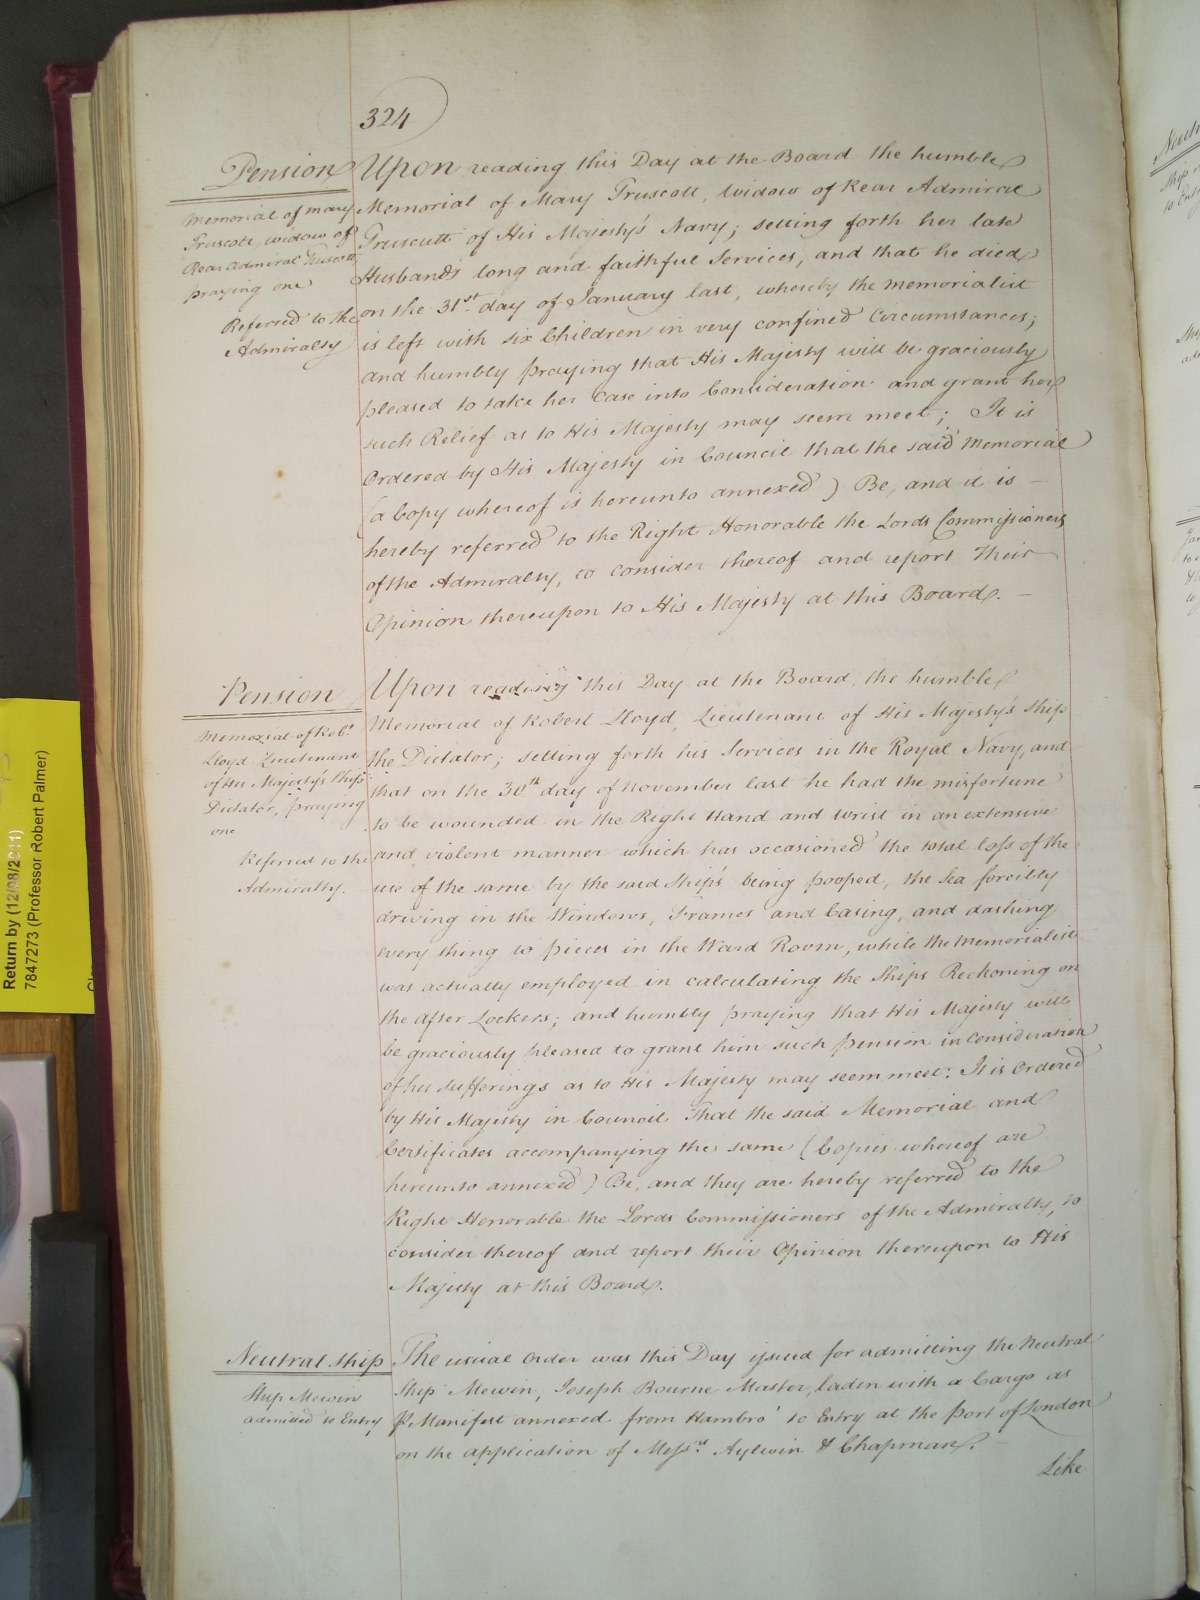 324
Pension
Memorial of Mary
Truscott, widow of
Rear Admiral Truscott,
praying one
Referred to the
Admiralty
Upon reading this Day at the Board the humble
Memorial of Mary Truscott, Widow of Rear Admiral
Truscutt of His Majesty's Navy; setting forth her late
Husbands long and faithful Services, and that he died
on the 31st. day of January last, whereby the Memorialist
is left with six Children in very confined Circumstances;
and humbly praying that His Majesty will be graciously
pleased to take her Case into Consideration and grant her
such Relief as to His Majesty may seem meet; It is
Ordered by His Majesty in Council that the said Memorial
(a Copy whereof is hereunto annexed) Be, and it is –
hereby referred to the Right Honorable the Lords Commissioners
of the Admiralty, to consider thereof and report Their
Opinion thereupon to His Majesty at this Board. –
Pension
Memorial of Robt.
Lloyd Lieutenant
of His Majesty's Ship
Dictator, praying
one
Referred to the
Admiralty.
Upon reading this Day at the Board, the humble
Memorial of Robert Lloyd, Lieutenant of His Majesty's Ship
the Dictator; setting forth his Services in the Royal Navy, and
that on the 30th day of November last he had the misfortune
to be wounded in the Right Hand and wrist in an extensive
and violent manner which has occasioned the total loss of the
use of the same by the said Ship's being pooped, the Sea forcibly
driving in the Windows, Frames and Casing, and dashing
every thing to pieces in the Ward Room, while the Memorialist
was actually employed in calculating the Ships Reckoning on
the after Lockers; and humbly praying that His Majesty will
be graciously pleased to grant him such Pension in Consideration
of his sufferings as to His Majesty may seem meet: It is Ordered
by His Majesty in Council That the said Memorial and
Certificates accompanying the same (Copies whereof are
hereunto annexed) Be, and they are hereby referred to the
Right Honorable the Lords Commissioners of the Admiralty, to
consider thereof and report their Opinion thereupon to His
Majesty at this Board.
Neutral Ship
Ship Mewin
admitted to Entry
The usual Order was this Day issued for admitting the Neutral
Ship Mewin, Joseph Bourne Master, laden with a Cargo as
P Manifest annexed from Hambro' to Entry at the Port of London
on the application of Messrs. Aylwin & Chapman. –
Like
Return by (12/08/2011)
7847273 (Professor Robert Palmer)